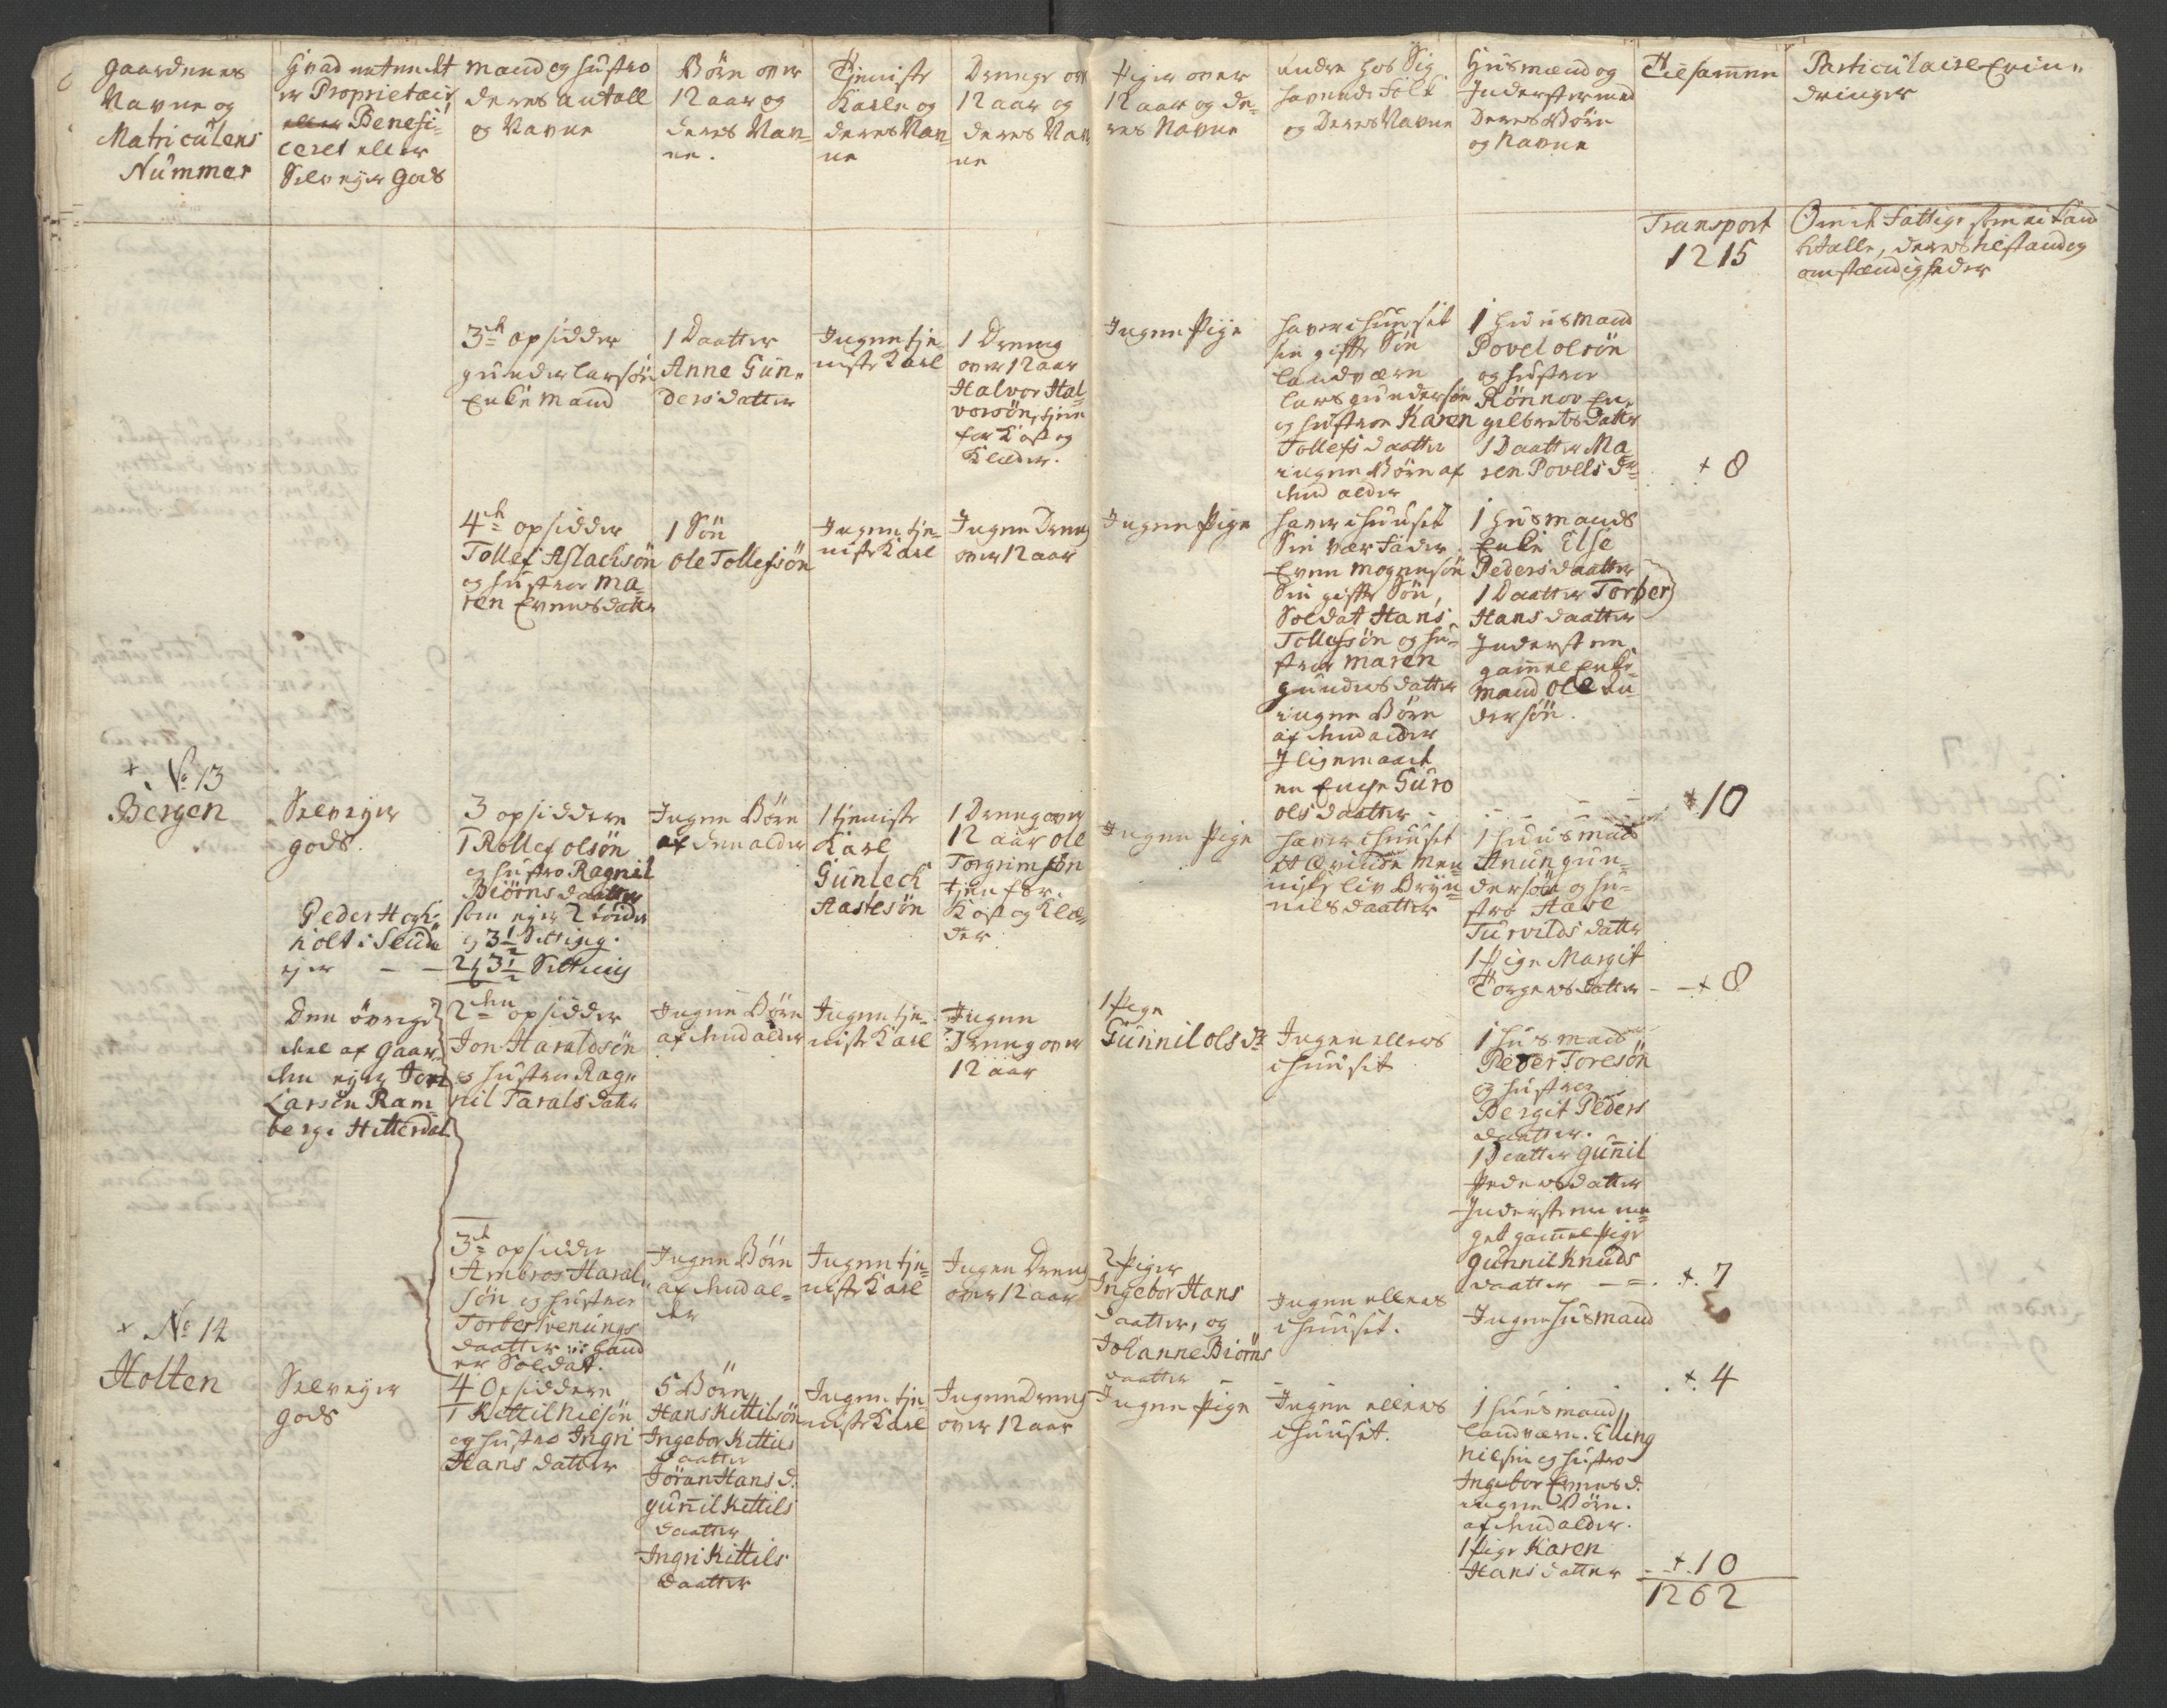 Gaardenes
Navne og
Matriculens
Nummer
Hvad enten det
er Proprietair,
eller Benefi-
ceret eller
Selv eyer Gods
Mand og Hustro
deres antall
og Navne
Børn over
12 aar og
deres Nav-
ne.
Tjeniste
Karle og
deres Nav-
ne
Drenge over
12 aar og
deres Nav-
ne
Piger over
12 aar og de-
res Navne
Andre hos Sig
havende Folk
og Deres Navne
Husmænd og
Inderster med
Deres Børn
og Navne
Tilsamen
Particulaire Erin-
dringer
Transport
1215
Om de Fattige som ei kand
betalle, deres tilstand og
omstændigheder
3de opsidder
Gunder Larsøn
Enke Mand
1 Daatter
Anne Gun-
ders datter
Ingen tje-
niste Karl
1 Dreng
over 12 aar
Halvor Hal-
vorsøn, tjen
for Kost og
Klæder.
Ingen Pige
haver i huuset
sin gifte Søn
Landværn
Lars Gundersøn
og hustroe Karen
Tollefs daatter
ingen Børn af
den alder
1 Huusmand
Povel Olsøn
og hustroe
Rönnov En-
gelbrets datter
1 Daatter Ma
ren Povels dr
+ 8
4de opsidder
Tollef Aslachsøn
og hustroe Ma-
ren Evens datter
1 Søn
Ole Tollefsøn
Ingen tje-
niste Karl
Ingen Dreng
over 12 aar
Ingen Pige
haver i huuset
Sin Vær Fader
Even Mogensøn
Sin gifte Søn,
Soldat Hans
Tollefsøn og hu-
stroe Maren
Gunders datter
ingen Børn
af den alder
Iligemaade
en Enche Guro
Ols daatter
1 Husmands
Enke Else
Peders daatter
1 Daatter Torber
Hans daatter
Inderst en
gamel Enke
Mand Ole An
dersøn.
+ 10
+ No 13
Bergen
Selveyer
gods.
Peder Hogh-
holt i Skude
ejer
3 opsiddere
1 Rollef Olsøn
og hustro Ragnil
Biörns daatter
som ejer 2 tønder
og 3½ Setting.
2 t 3½ Setting
Ingen Børn
af den alder
1 tjeniste
Karl
Gunleck
Aastesøn
1 Dreng over
12 aar Ole
Torgrimsøn
tjen for
Kost og Klæ-
der
Ingen Pige
haver i huuset
et Qvinde Men-
niske Liv Bryn-
nils daatter
1 Huusmand
Anun Gun-
dersøn og hu-
stro Aase
Turvilds datter
1 Pige Margit
Torgers datter
+ 8
Den øvrige
del af Gaar-
den ejer Jon
Larsen Ram-
berg i Hitterdal
2den opsidder
Jon Haraldsøn
og hustroe Rag-
nil Tarals datter
Ingen Børn
af den alder
Ingen tje-
niste Karl
Ingen
Dreng over
12 aar
1 Pige
Gunnil Ols dr
Ingen ellers
i huuset
1 Husmand
Peder Toresøn
og hustroe
Bergit Peders
daatter.
1 Daatter Gunil
Peders datter
Inderst en me-
get gamel Pige
Gunnil Knuds
daatter
+ 7
3de opsidder
Ambros Haral-
søn og hustroe
Torber Svenungs
daatter
er Soldat.
Ingen Børn
af den al-
der
Ingen tje-
niste Karl
Ingen Dreng
over 12 aar
2 Piger
Ingebor Hans
daatter, og
Johanne Biörns
daatter
Ingen ellers
i huuset.
Ingen Husmand
+ 4
+ No 14
Holten
Selveyer
gods
4 Opsiddere
1 Kettil Nilsøn
og hustro Ingri
Hans datter
5 Børn
Hans Kettilsøn
Ingebor Kittils
daatter
Jöran Hans d.
Gunnil Kettils
daatter
Ingri Kittils
daatter
Ingen tje-
niste Karl
Ingen Dreng
over 12 aar
Ingen Pige
Ingen ellers
i huuset.
1 Huusmand
Landværn. Elling
Nilsøn og hustro
Ingebor Evens d.
ingen Børn.
af den alder.
1 Pige Karen
Hans datter
+ 10
1262